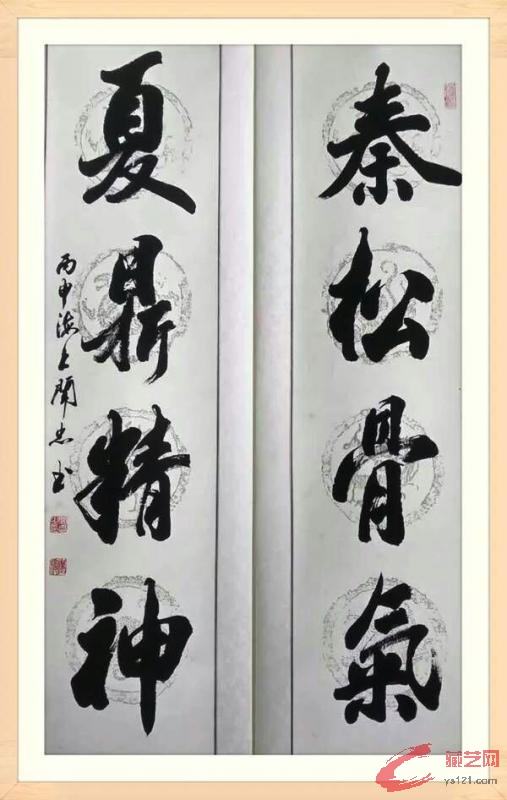 秦松骨氣
夏鼎精神
丙申海上闻忠书
藏艺网
ys121.com